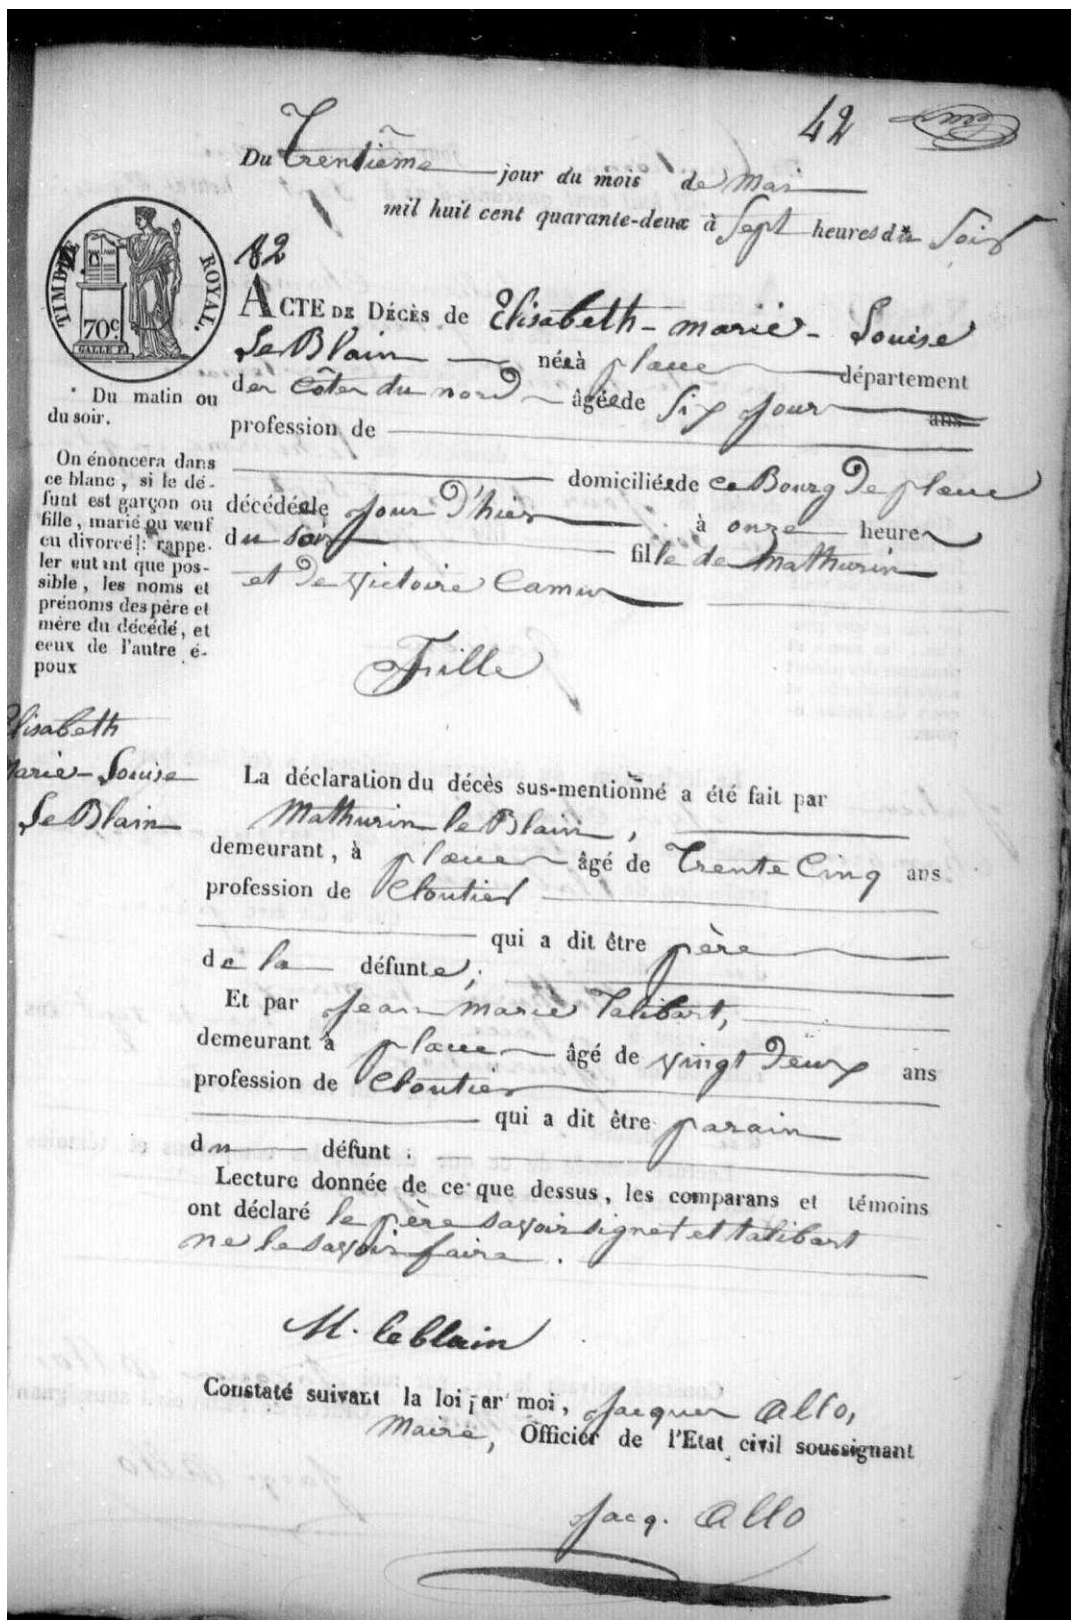 42
Du Trentième jour du mois de Mai
mil huit cent quarante-deux à Sept heures du Soir
82
TIMBRE ROYAL.
70c
ACTE DE DÉCÈS de Elisabeth-marie-Louise
Le Blain née à plœuc département
des Côtes du nord âgée de Six jours ans
profession de
domiciliée de ce Bourg De plœuc
décédée le jour D'hier à onze heures
du soir fille de Mathurin
et De Victoire Camus
Fille
* Du matin ou
du soir.
On énoncera dans
ce blanc, si le dé-
funt est garçon ou
fille, marié ou veuf
ou divorcé: rappe-
ler autant que pos-
sible, les noms et
prénoms des père et
mère du décédé, et
ceux de l'autre é-
poux
Elisabeth
Marie-Louise
Le Blain
La déclaration du décès sus-mentionné a été fait par
Mathurin le Blain,
demeurant, à plœuc âgé de Trente Cinq ans
profession de Cloutier
qui a dit être père
de la défunte;
Et par Jean Marie Talibart,
demeurant à plœuc âgé de vingt Deux ans
profession de Cloutier
qui a dit être parain
du défunt.
Lecture donnée de ce que dessus, les comparans et témoins
ont déclaré le père savoir signer et talibart
ne le savoir faire.
M. le blain
Constaté suivant la loi par moi, Jacques Allo,
Maire, Officier de l'Etat civil soussignant
Jacq. Allo